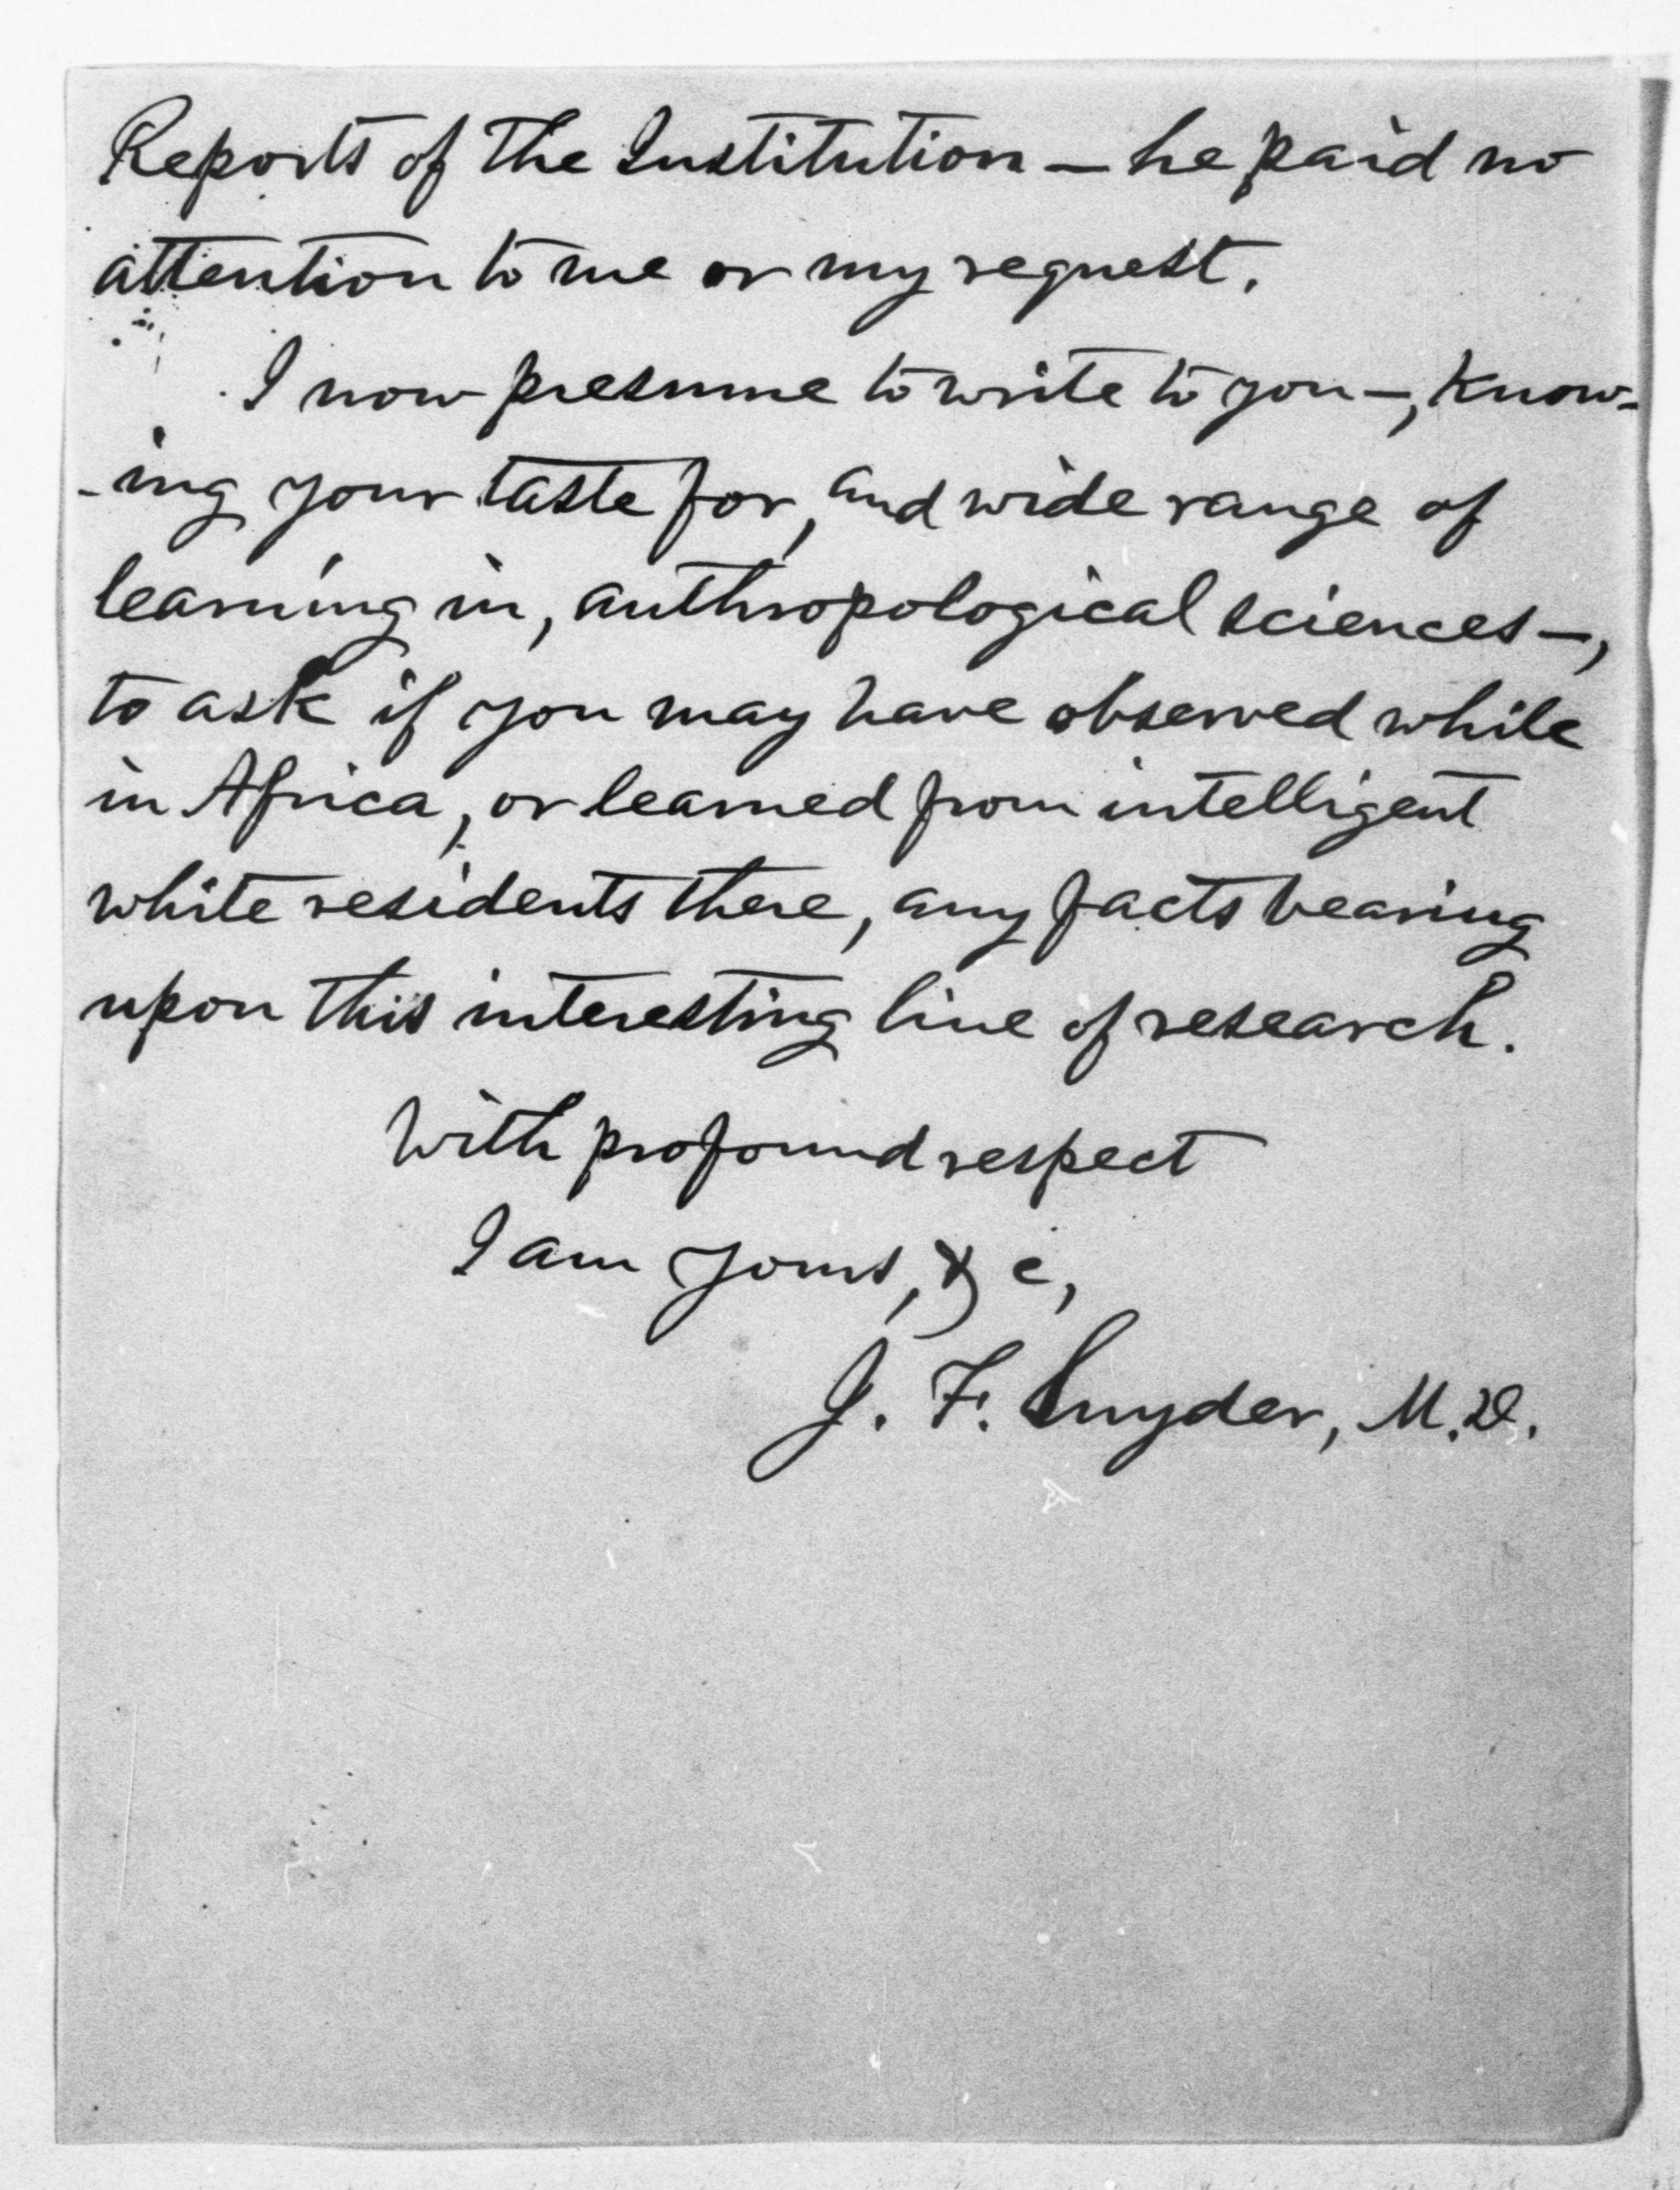 Reports of the Institution — he paid no
attention to me or my request.
I now presume to write to you —, know-
-ing your taste for, and wide range of
learning in, anthropological sciences —,
to ask if you may have observed while
in Africa, or learned from intelligent
white residents there, any facts bearing
upon this interesting line of research.
With profound respect
I am yours, &c,
J. F. Snyder, M.D.